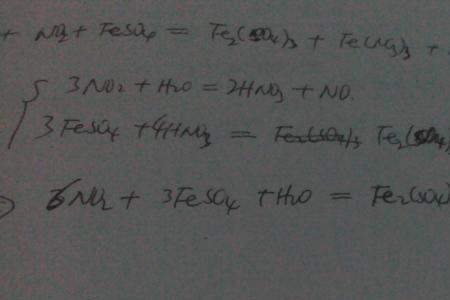 + NO₂ + FeSO₄ = Fe₂(SO₄)₃ + Fe(NO₃)₃ +
3NO₂ + H₂O = 2HNO₃ + NO.
3FeSO₄ + 4HNO₃ = Fe₂(SO₄)₃ Fe₂(SO₄)
6NO₂ + 3FeSO₄ + H₂O = Fe₂(SO₄)